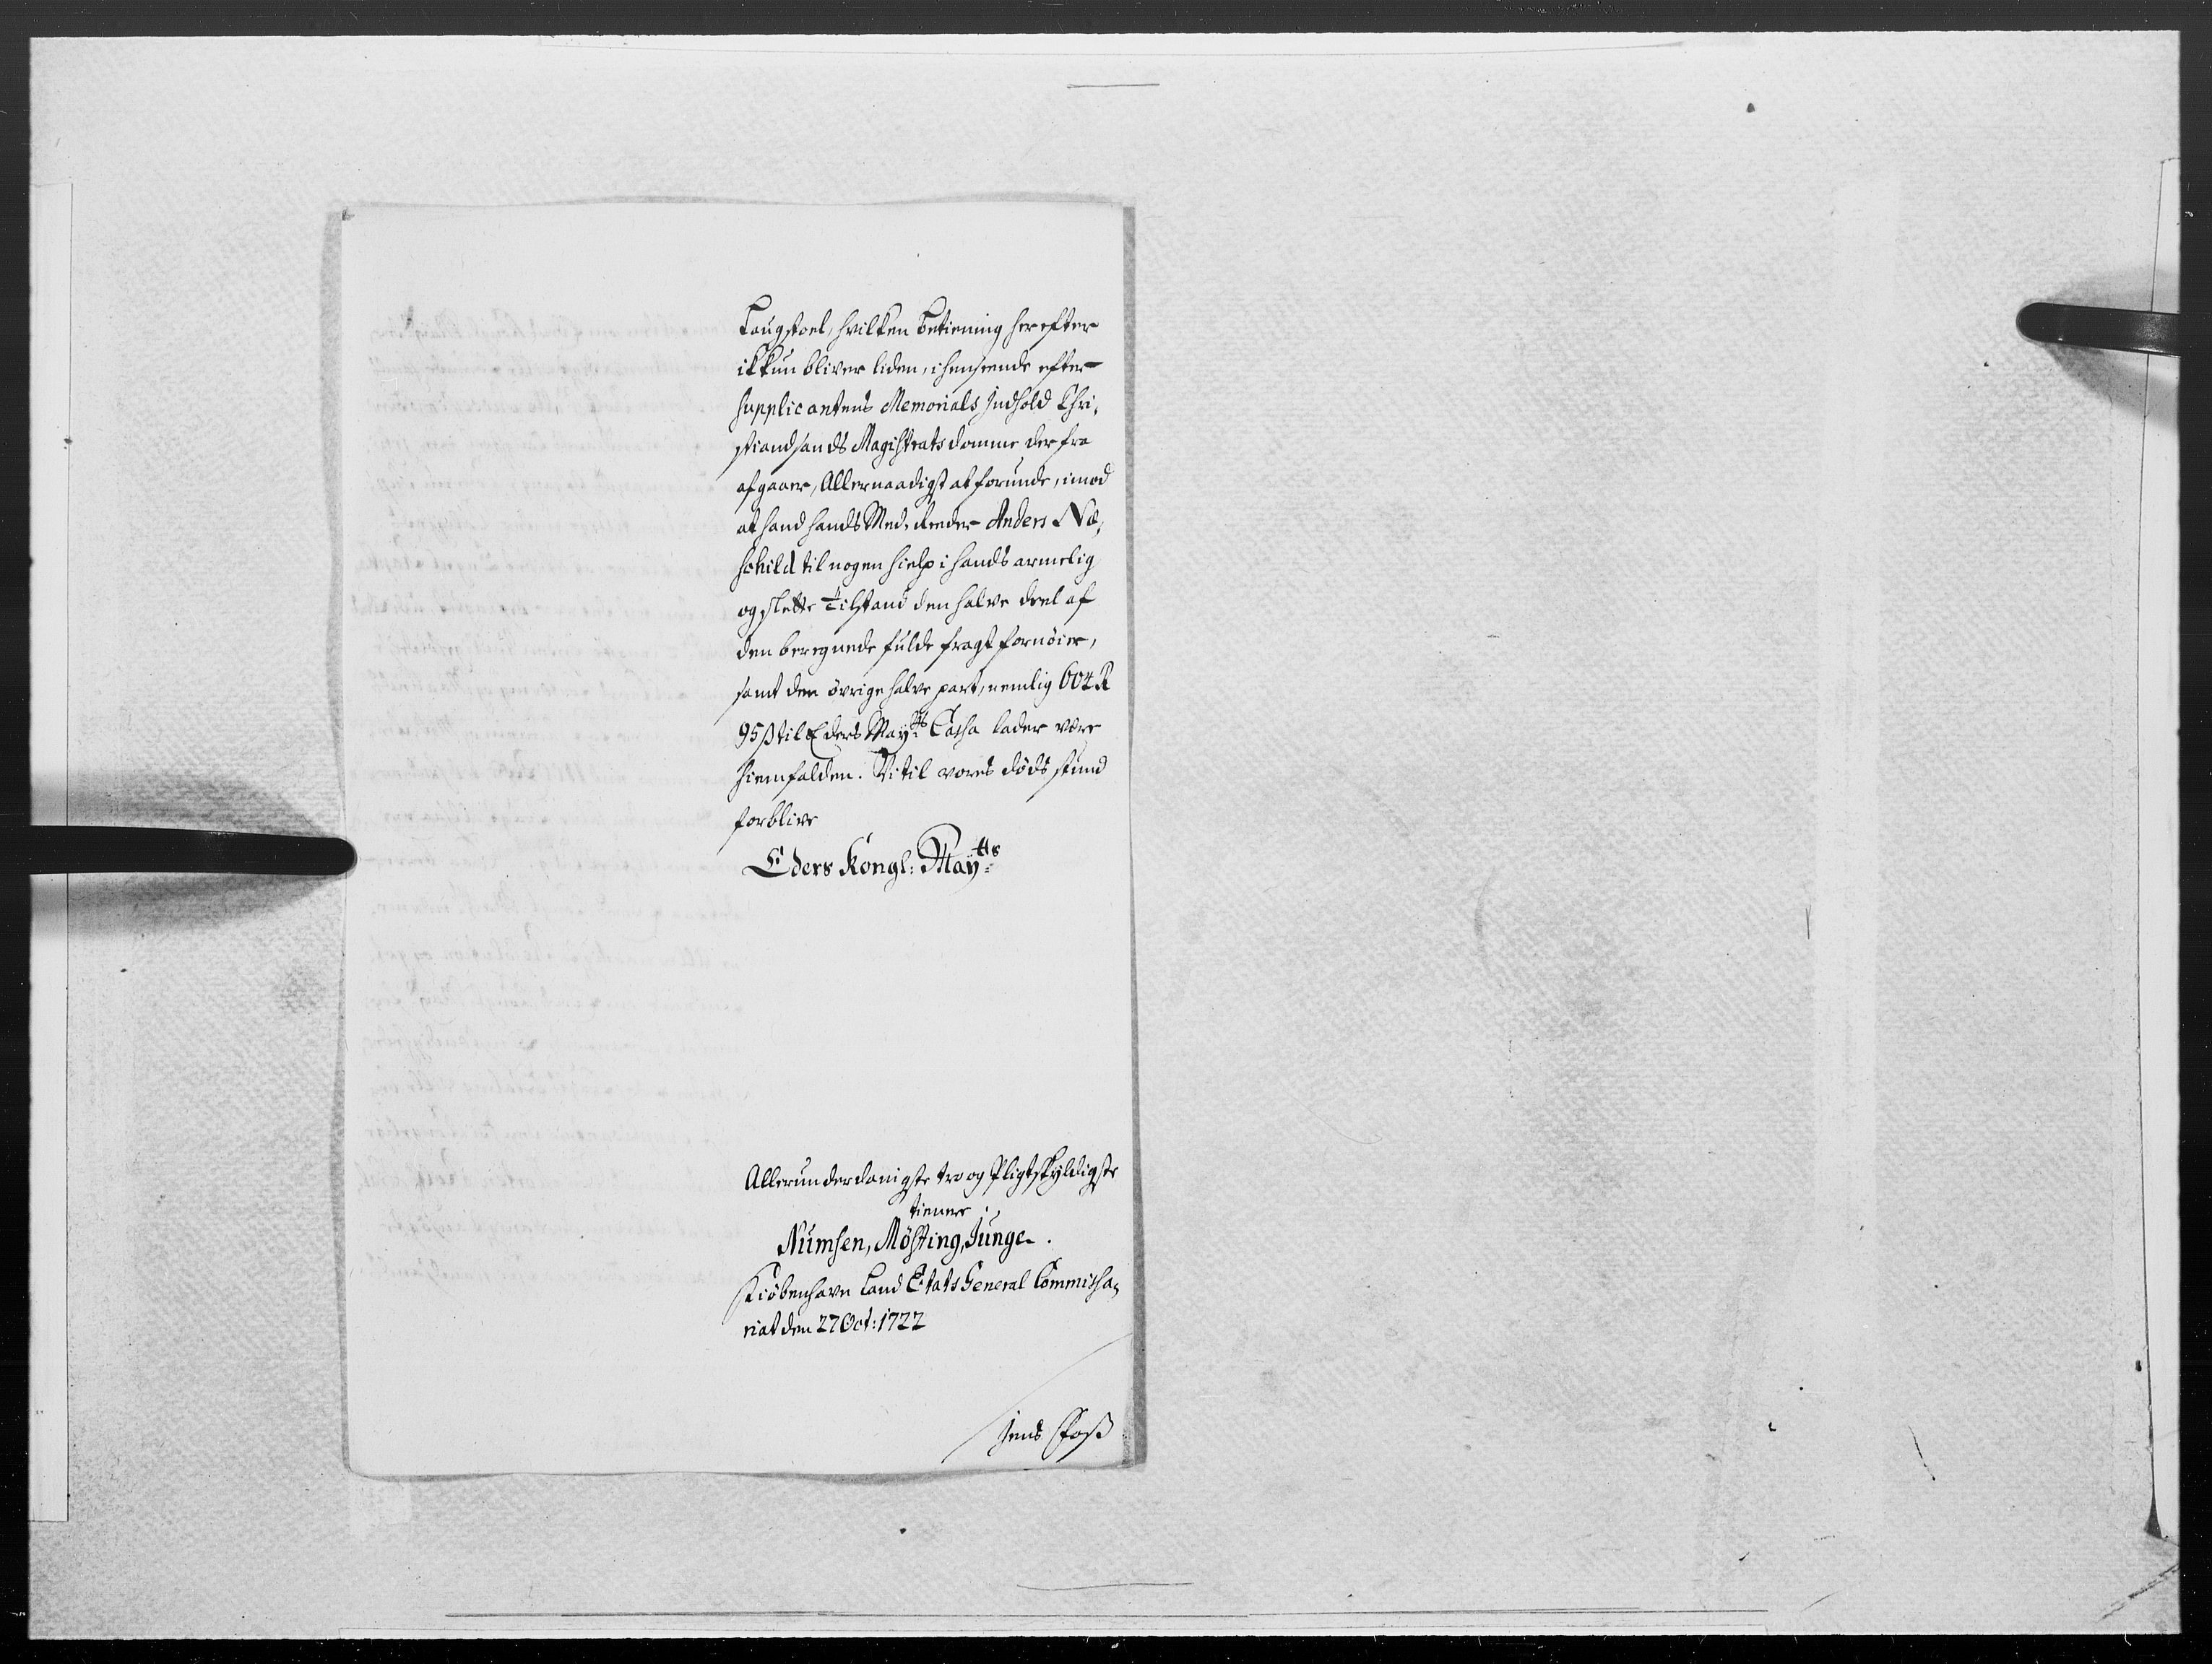 Laugstoel, hvilken betiening herefter
ikkun bliver liden, i henseende efter
Supplicantens Memorials Indhold Chri,
stiandsands Magistrats domme der fra
afgaaer, Allernaadigst at forunde, imod
at hand hands Med-Reeder Anders Næ,
schild til nogen hielp i hands armelig
og slette Tilstand den halve deel af
den beregnede fulde fragt fornøier,
samt den øvrige halve part, nemlig 604 R
95 ß til Eders Maytts Cassa lader være
hiemfalden. Vi til vores døds stund
forblive
Eders Kongl: Maytts
Allerunderdanigste tro og Pligtskyldigste
tienere
Numsen, Møsting, Junge.
Kiøbenhavn Land Etats General Commissa,
riat den 27 Oct: 1722
Jens Foss